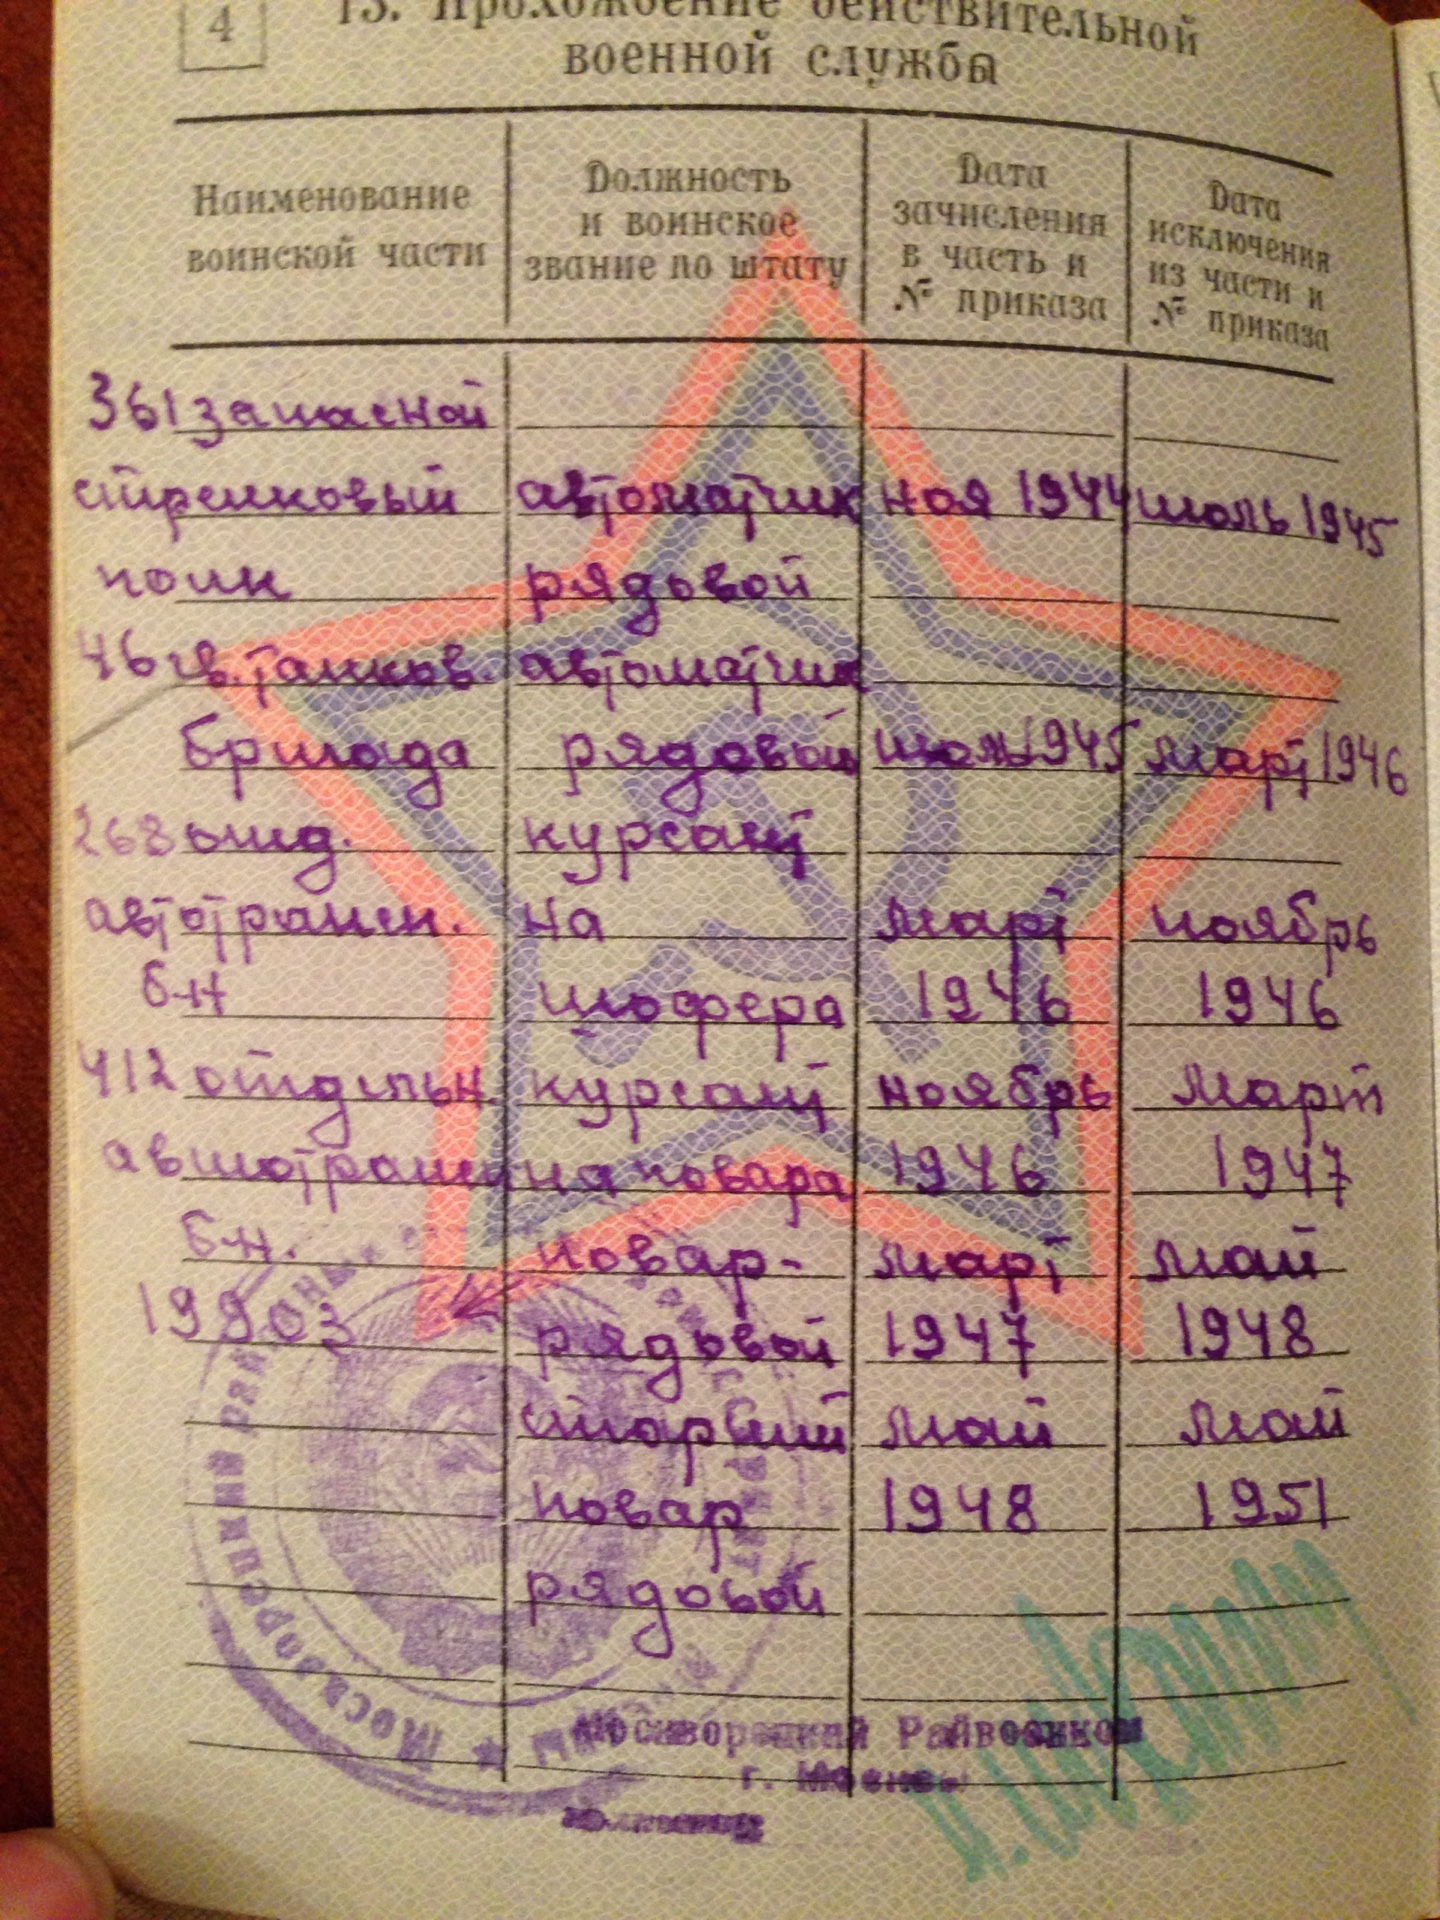 4
13. Прохождение действительной
военной службы
Наименование
воинской части
Должность
и воинское
звание по штату
Дата
зачисления
в часть и
№ приказа
Дата
исключения
из части и
№ приказа
361 запасной
стрелковый автоматчик ноя 1944 июль 1945
полк рядовой
46 гв. танков. автоматчик
бригада рядовой июль 1945 март 1946
268 отд. курсант
автотрансп. на март ноябрь
б-н шофера 1946 1946
412 отдельн. курсант ноябрь март
автотрансп на повара 1946 1947
б-н. повар- март май
19903 рядовой 1947 1948
старший май май
повар 1948 1951
рядовой
Москворецкий Райвоенком
г. Москвы